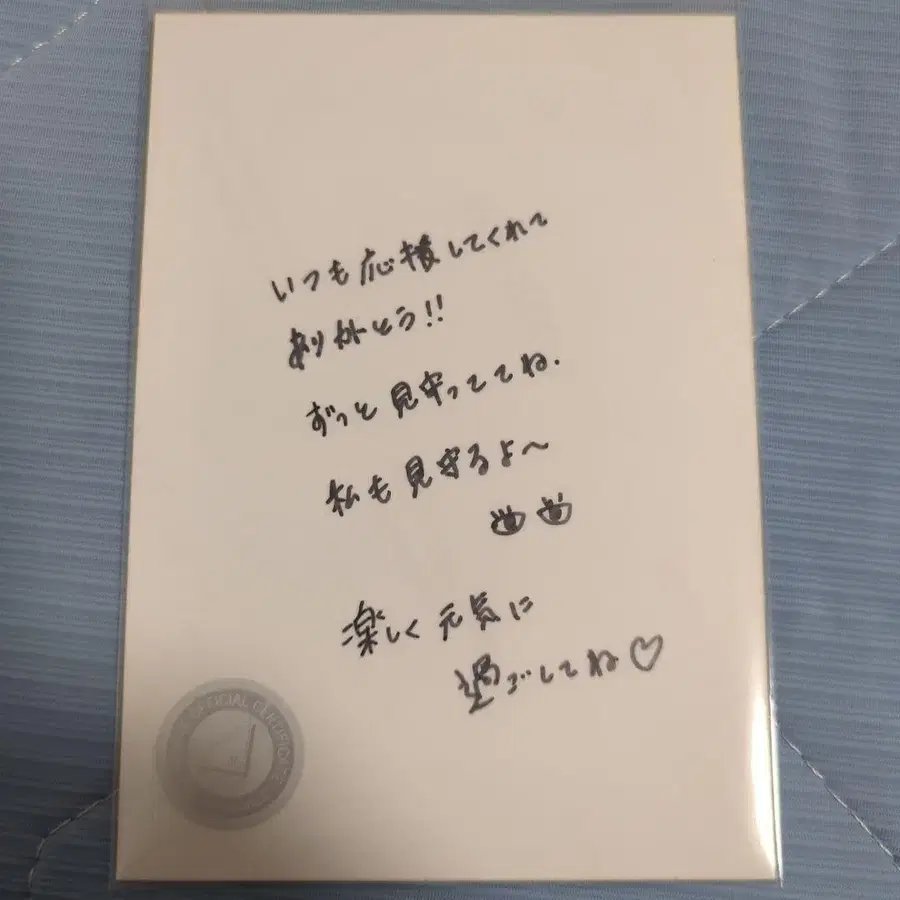 いつも応援してくれて
ありがとう!!
ずっと見守っててね.
私も見守るよ〜
楽しく元気に
過ごしてね♡
OFFICIAL CERTIFICATE